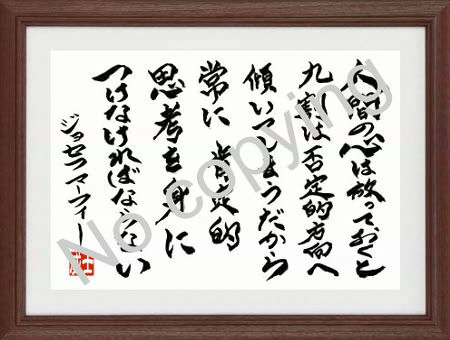 人間の心は放っておくと
九割は否定的方向へ
傾いてしまうだから
常に肯定的
思考を身に
つけなければならない
ジョセフマーフィー
No copying